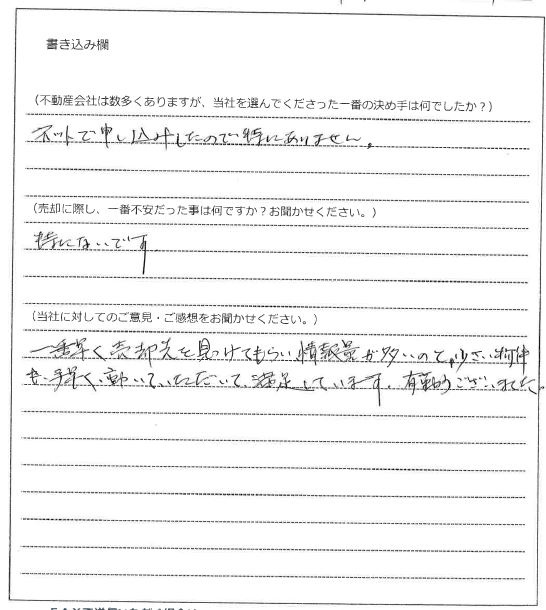 書き込み欄
(不動産会社は数多くありますが、当社を選んでくださった一番の決め手は何でしたか?)
ネットで申し込みしたので特にありません。
(売却に際し、一番不安だった事は何ですか?お聞かせください。)
特にないです
(当社に対してのご意見・ご感想をお聞かせください。)
一番早く売却先を見つけてもらい情報量が多いのと、小さい物件
も手早く動いていただいて満足しています。有難うございました。